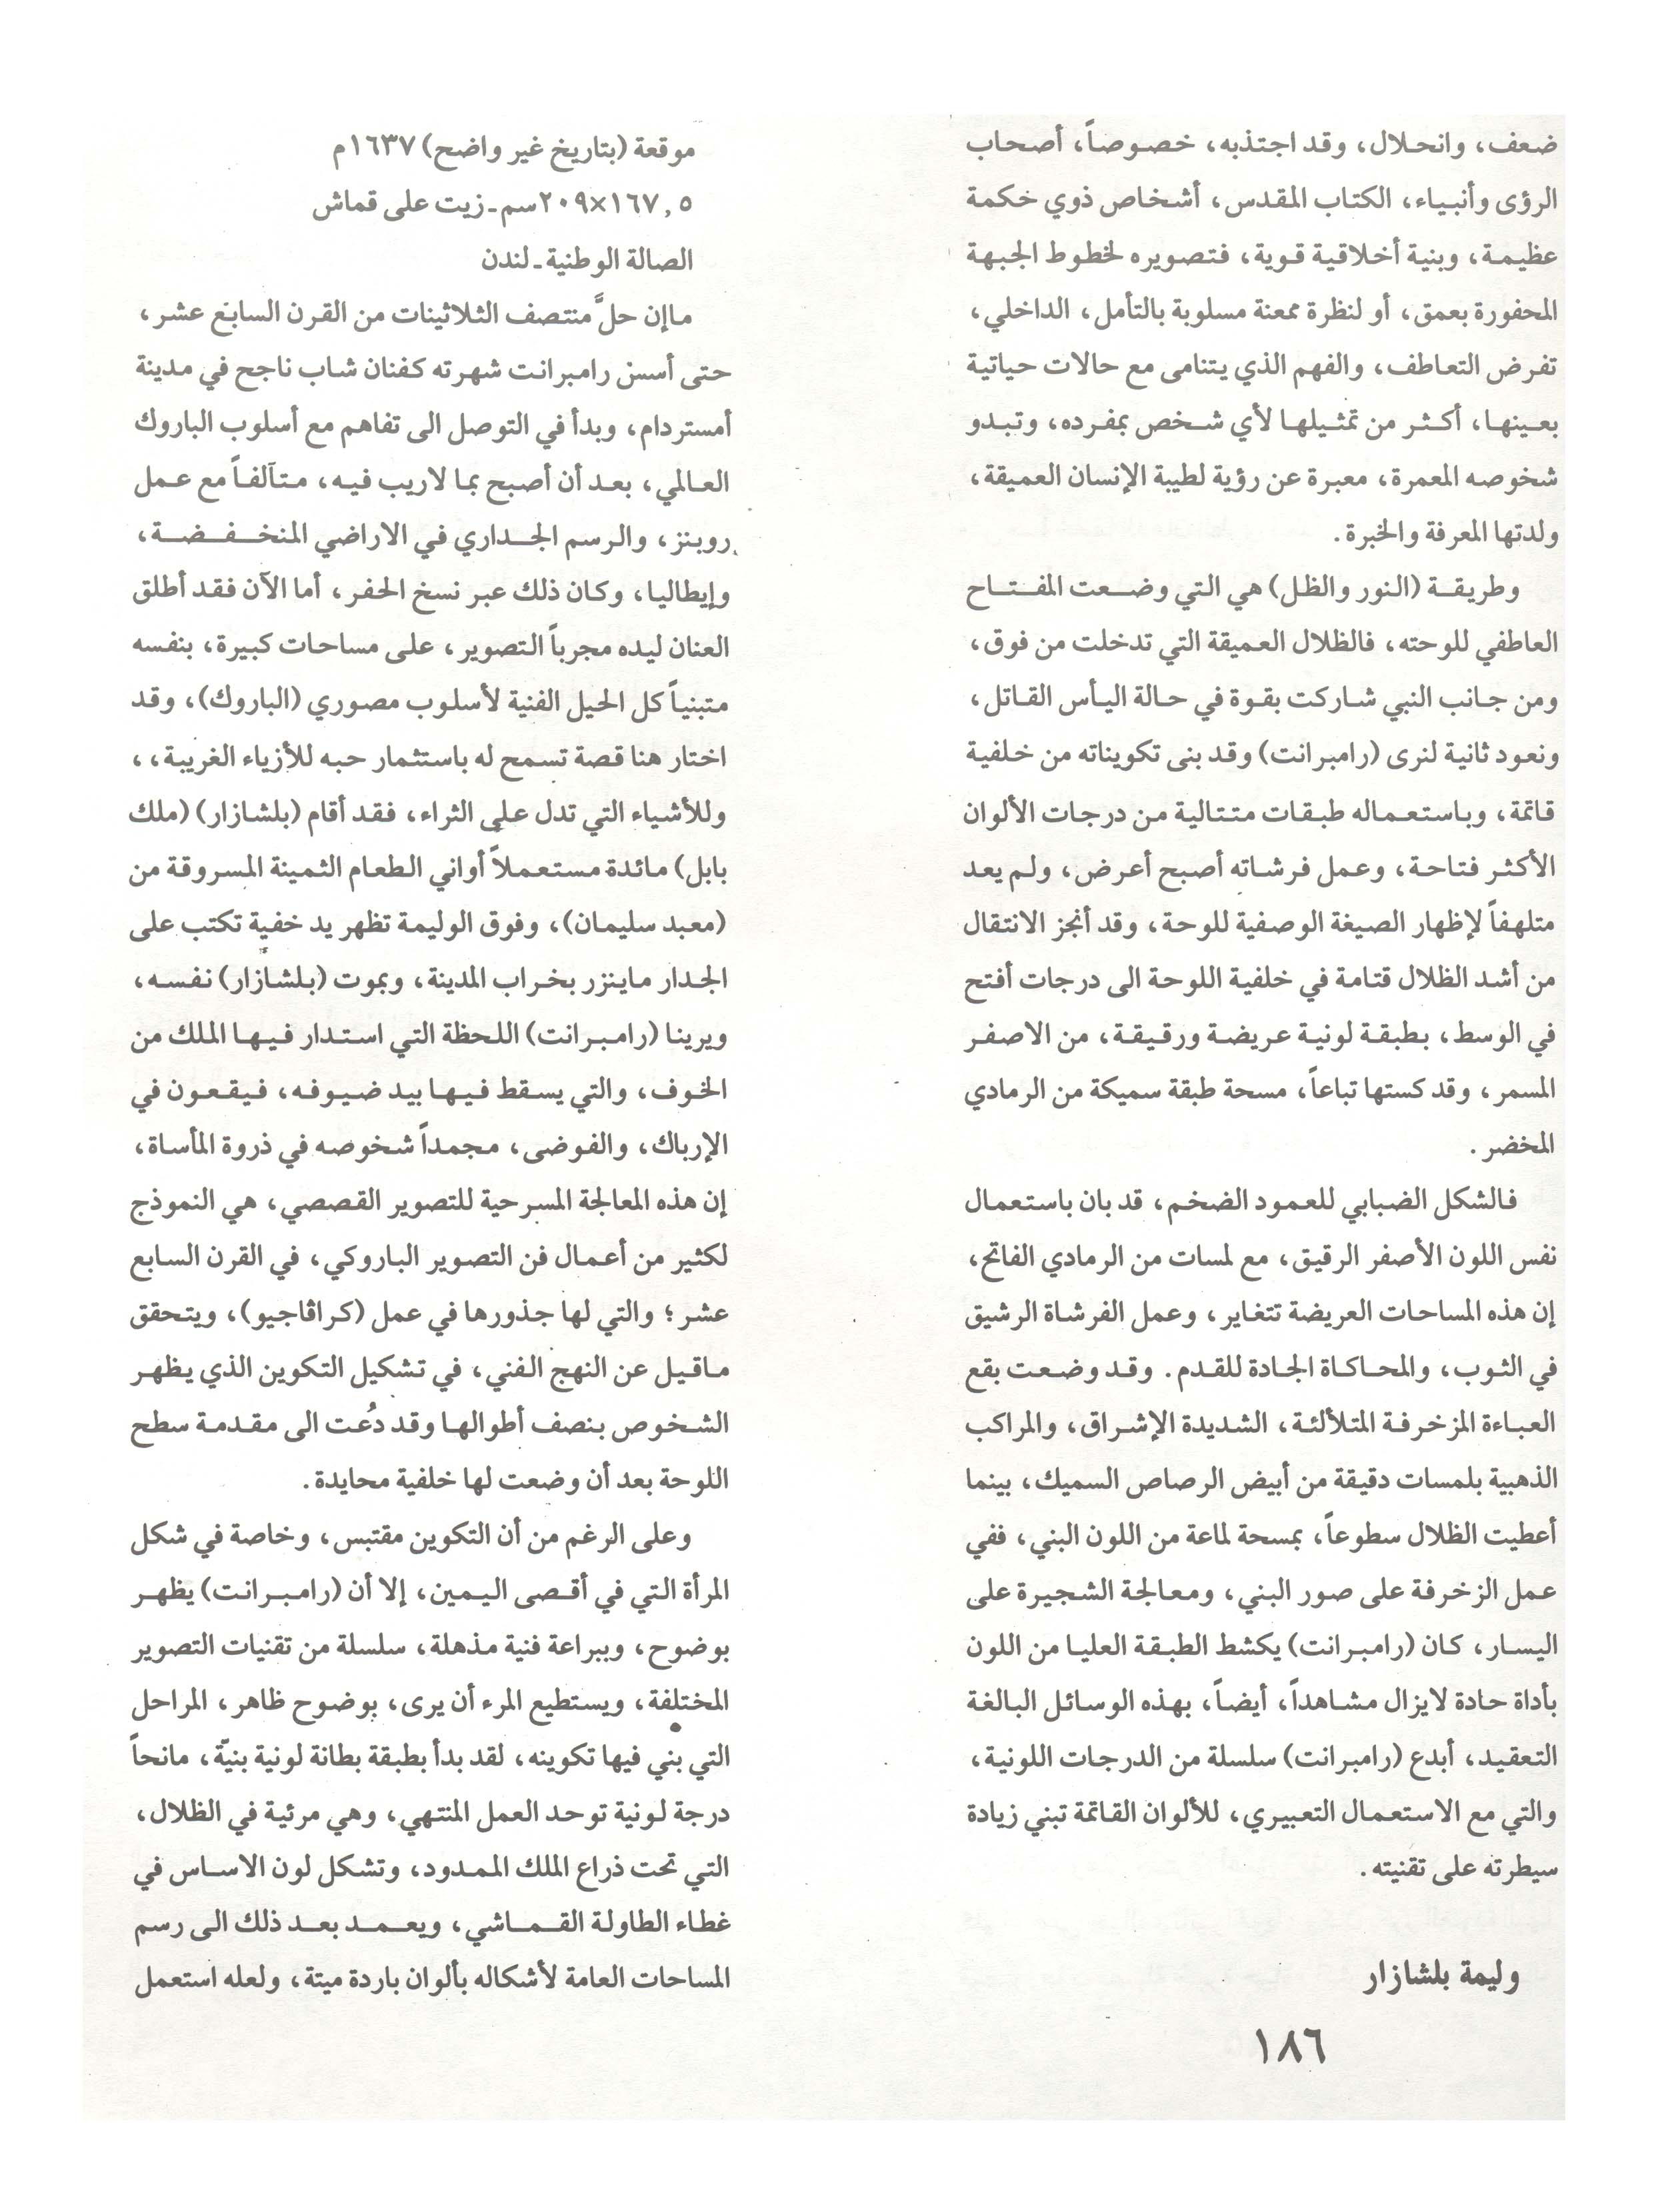 ضعف، وانحلال، وقد اجتذبه، خصوصاً، أصحاب
الرؤى وأنبياء، الكتاب المقدس، أشخاص ذوي حكمة
عظيمة، وبنية أخلاقية قوية، فتصويره لخطوط الجبهة
المحفورة بعمق، أو لنظرة ممعنة مسلوبة بالتأمل، الداخلي،
تفرض التعاطف، والفهم الذي يتنامى مع حالات حياتية
بعينها، أكثر من تمثيلها لأي شخص بمفرده، وتبدو
شخوصه المعمرة، معبرة عن رؤية لطيبة الإنسان العميقة،
ولدتها المعرفة والخبرة.
وطريقة (النور والظل) هي التي وضعت المفتاح
العاطفي للوحته، فالظلال العميقة التي تدخلت من فوق،
ومن جانب النبي شاركت بقوة في حالة اليأس القاتل،
ونعود ثانية لنرى (رامبرانت) وقد بنى تكويناته من خلفية
قاتمة، وباستعماله طبقات متتالية من درجات الألوان
الأكثر فتاحة، وعمل فرشاته أصبح أعرض، ولم يعد
متلهفاً لإظهار الصيغة الوصفية للوحة، وقد أنجز الانتقال
من أشد الظلال قتامة في خلفية اللوحة الى درجات أفتح
في الوسط، بطبقة لونية عريضة ورقيقة، من الاصفر
المسمر، وقد كستها تباعاً، مسحة طبقة سميكة من الرمادي
المخضر.
فالشكل الضبابي للعمود الضخم، قد بان باستعمال
نفس اللون الأصفر الرقيق، مع لمسات من الرمادي الفاتح،
إن هذه المساحات العريضة تتغاير، وعمل الفرشاة الرشيق
في الثوب، والمحاكاة الجادة للقدم. وقد وضعت بقع
العباءة المزخرفة المتلألئة، الشديدة الإشراق، والمراكب
الذهبية بلمسات دقيقة من أبيض الرصاص السميك، بينما
أعطيت الظلال سطوعاً، بمسحة لماعة من اللون البني، ففي
عمل الزخرفة على صور البني، ومعالجة الشجيرة على
اليسار، كان (رامبرانت) يكشط الطبقة العليا من اللون
بأداة حادة لايزال مشاهداً، أيضاً، بهذه الوسائل البالغة
التعقيد، أبدع (رامبرانت) سلسلة من الدرجات اللونية،
والتي مع الاستعمال التعبيري، للألوان القاتمة تبني زيادة
سيطرته على تقنيته.
وليمة بلشازار
موقعة (بتاريخ غير واضح) ١٦٣٧م
١٦٧,٥×٢٠٩سم-زيت على قماش
الصالة الوطنية-لندن
ماإن حلَّ منتصف الثلاثينات من القرن السابع عشر،
حتى أسس رامبرانت شهرته كفنان شاب ناجح في مدينة
أمستردام، وبدأ في التوصل الى تفاهم مع أسلوب الباروك
العالمي، بعد أن أصبح بما لاريب فيه، متآلفاً مع عمل
روبنز، والرسم الجداري في الاراضي المنخفضة،
وإيطاليا، وكان ذلك عبر نسخ الحفر، أما الآن فقد أطلق
العنان ليده مجرباً التصوير، على مساحات كبيرة، بنفسه
متبنياً كل الحيل الفنية لأسلوب مصوري (الباروك)، وقد
اختار هنا قصة تسمح له باستثمار حبه للأزياء الغريبة،،
وللأشياء التي تدل على الثراء، فقد أقام (بلشازار) (ملك
بابل) مائدة مستعملاً أواني الطعام الثمينة المسروقة من
(معبد سليمان)، وفوق الوليمة تظهر يد خفية تكتب على
الجدار ماينزر بخراب المدينة، وبموت (بلشازار) نفسه،
ويرينا (رامبرانت) اللحظة التي استدار فيها الملك من
الخوف، والتي يسقط فيها بيد ضيوفه، فيقعون في
الإرباك، والفوضى، مجمداً شخوصه في ذروة المأساة،
إن هذه المعالجة المسرحية للتصوير القصصي، هي النموذج
لكثير من أعمال فن التصوير الباروكي، في القرن السابع
عشر؛ والتي لها جذورها في عمل (كراڤاجيو)، ويتحقق
ماقيل عن النهج الفني، في تشكيل التكوين الذي يظهر
الشخوص بنصف أطوالها وقد دُعت الى مقدمة سطح
اللوحة بعد أن وضعت لها خلفية محايدة.
وعلى الرغم من أن التكوين مقتبس، وخاصة في شكل
المرأة التي في أقصى اليمين، إلا أن (رامبرانت) يظهر
بوضوح، وببراعة فنية مذهلة، سلسلة من تقنيات التصوير
المختلفة، ويستطيع المرء أن يرى، بوضوح ظاهر، المراحل
التي بني فيها تكوينه، لقد بدأ بطبقة بطانة لونية بنيّة، مانحاً
درجة لونية توحد العمل المنتهي، وهي مرئية في الظلال،
التي تحت ذراع الملك الممدود، وتشكل لون الاساس في
غطاء الطاولة القماشي، ويعمد بعد ذلك الى رسم
المساحات العامة لأشكاله بألوان باردة ميتة، ولعله استعمل
١٨٦